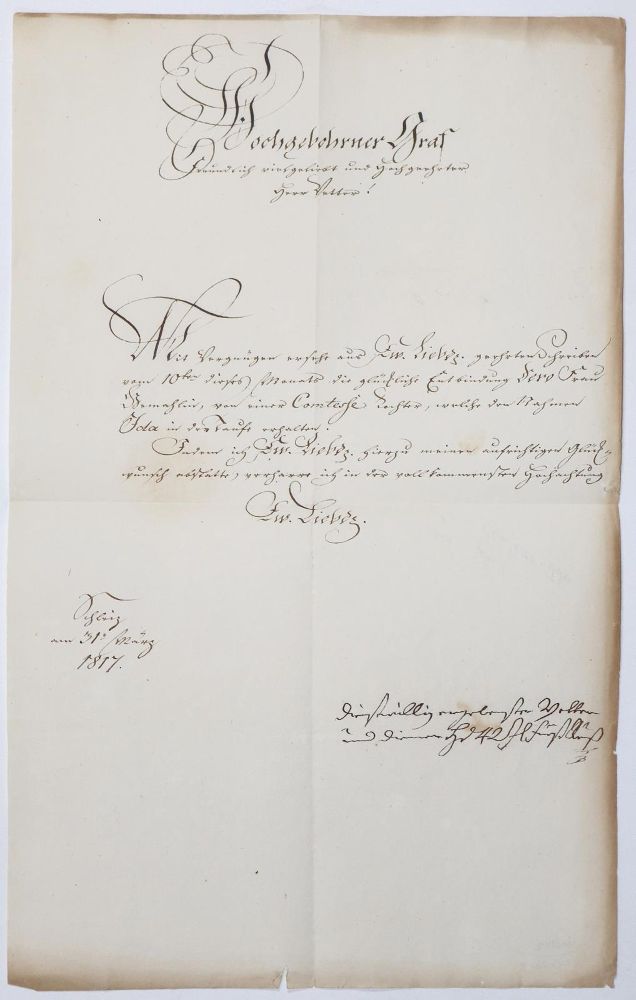 Hochgebohrner Graf
Freundlich vielgeliebt und Hochgeehrter
Herr Vetter!
Mit Vergnügen ersehe aus Ew. Liebdz. geehrten Schreiben
vom 10ten dieses Monats die glückliche Entbindung Dero Frau
Gemahlin, von einer Comtesse Tochter, welche den Nahmen
Ida in der Taufe erhalten.
Indem ich Ew. Liebdz. hierzu meinen aufrichtigen Glück-
wunsch abstatte, verharre ich in der vollkommensten Hochachtung
Ew. Liebdz.
Schleiz
am 31n März
1817.
dienstwillig ergebenster Vetter
und Diener H d 42